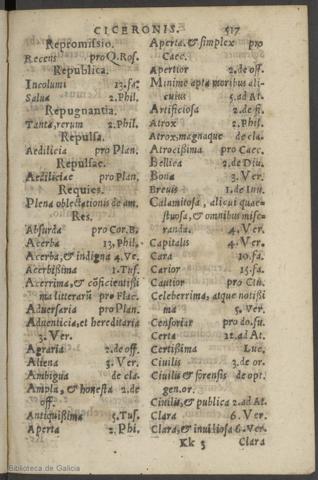 CICERONIS. 517
Repromissio.
Recens pro Q. Ros.
Republica.
Incolumi 13. fa.
Salua 2. Phil.
Repugnantia.
Tanta, rerum 2. Phil.
Repulsa.
Aedilicia pro Plan.
Repulsae.
Aediliciae pro Plan.
Requies.
Plena oblectationis de am.
Res.
Absurda pro Cor. B.
Acerba 13, Phil.
Acerba, & indigna 4. Ve.
Acerbißima 1. Tus.
Acerrima, & cõficientißi
ma litterarũ pro Flac.
Aduersaria pro Plan.
Aduenticia, et hereditaria
3. Ver.
Agraria 2. de off.
Aliena 3. Ver.
Ambigua de cla.
Ampla, & honesta 2. de
off.
Antiquißima 5. Tus.
Aperta 2. Phi.
Aperta. & simplex pro
Caec.
Apertior 2. de off.
Minime apta moribus ali-
cuius 5. ad At.
Artificiosa 2. de fi.
Atrox 2. Phil.
Atrox, magnaque de cla.
Atrocißima pro Caec.
Bellica 2. de Diu.
Bona 3. Ver.
Breuis 1. de Inu.
Calamitosa, alicui quae-
stuosa, & omnibus mise-
randa. 4. Ver.
Capitalis 4. Ver.
Cara 10. fa.
Carior 15. fa.
Cautior pro Clu.
Celeberrima, atque notißi
ma 5. Ver.
Censoriae pro do. su.
Certa 12. ad At.
Certißima Luc.
Ciuilis 3. de Or.
Ciuilis & forensis de opt.
gen. or.
Ciuilis, & publica 2. ad At.
Clara 6. Ver.
Clara, & inuidiosa 6. Ver.
Kk 3 Clara
Biblioteca de Galicia